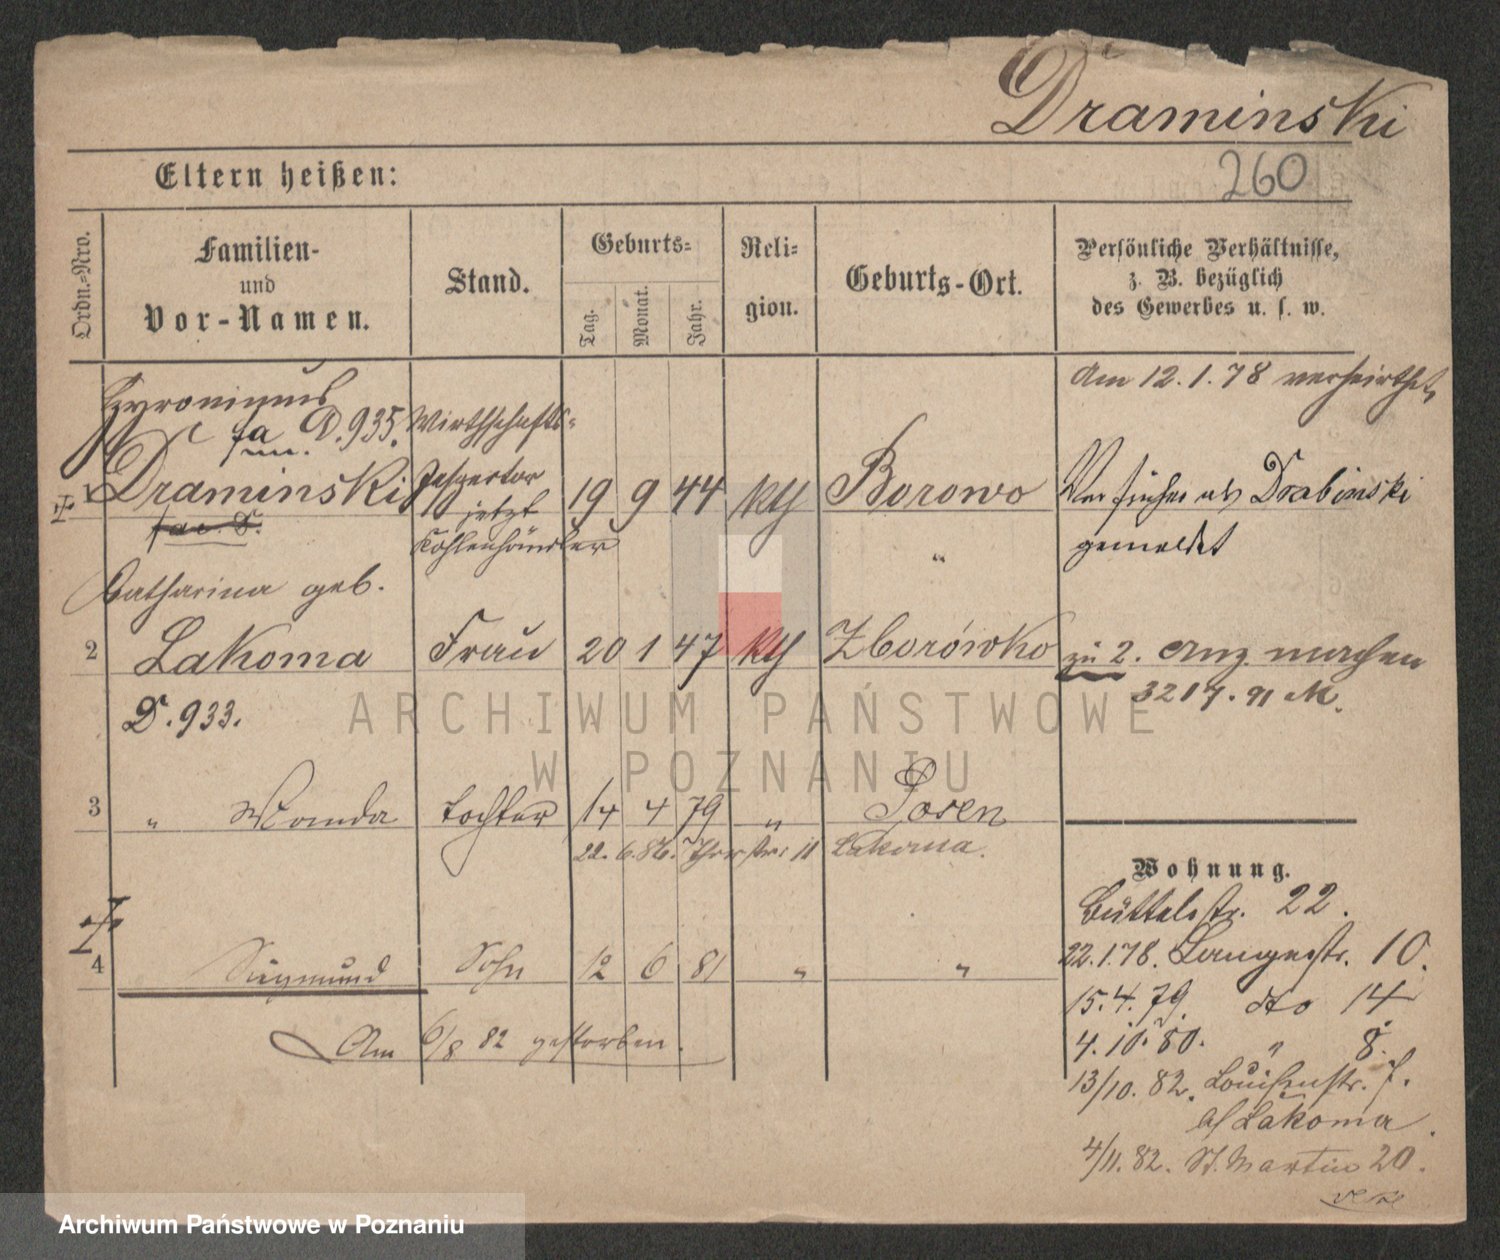 Draminski
260
Eltern heißen:
Ordn.=Nro.
Familien-
und
Vor-Namen.
Stand.
Geburts=
Tag.
Monat.
Jahr.
Reli-
gion.
Geburts-Ort.
Persönliche Verhältnisse,
z. B. bezüglich
des Gewerbes u. s. w.
Hyronimus
D. 935.
Wirthschafts-
Am 12. 1. 78 verheirathet,
1
Draminski
Inspector
jetzt
Kohlenhändler
19 9 44 kth Borowo
War früher als Drabinski
gemeldet
"
Catharina geb.
2 Lakoma Frau 20 1 47 kth Zborówko
zu 2. Anz. machen
3217. 91 M.
D. 933.
3 " Wanda Tochter 14 4 79 " Posen
22. 6. 86. 11 Lakoma.
4 Siegmund Sohn 12 6 81 " "
Am 6/8 82 gestorben.
Wohnung.
Büttelstr. 22.
22. 1. 78. Langestr. 10.
15. 4. 79. dto 14
4. 10. 80. " 8.
13/10. 82. Louisenstr. 7.
b/ Lakoma.
4/11. 82. St. Martin 20.
ARCHIWUM PAŃSTWOWE
W POZNANIU
Archiwum Państwowe w Poznaniu